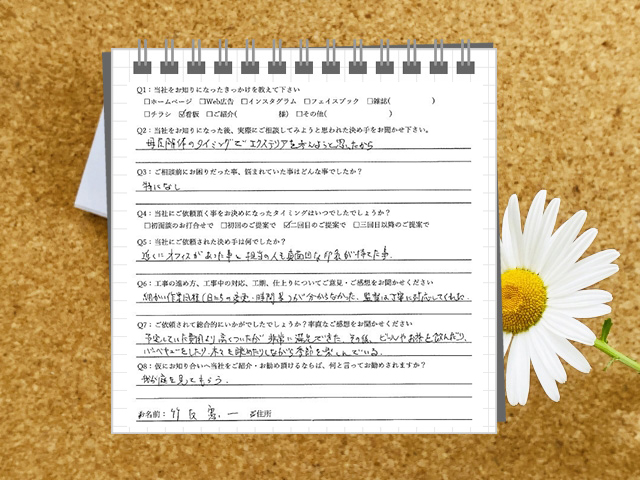 Q1：当社をお知りになったきっかけを教えて下さい
□ホームページ □Web広告 □インスタグラム □フェイスブック □雑誌( )
□チラシ ☑看板 □ご紹介( 様) □その他( )
Q2：当社をお知りになった後、実際にご相談してみようと思われた決め手をお聞かせ下さい。
母屋解体のタイミングでエクステリアを考えようと思ったから
Q3：ご相談前にお困りだった事、悩まれていた事はどんな事でしたか？
特になし
Q4：当社にご依頼頂く事をお決めになったタイミングはいつでしたでしょうか？
□初面談のお打合せで □初回のご提案で ☑二回目のご提案で □三回目以降のご提案で
Q5：当社にご依頼された決め手は何でしたか？
近くにオフィスがあった事と担当の人も真面目な印象が持てた事。
Q6：工事の進め方、工事中の対応、工期、仕上りについてご意見・ご感想をお聞かせください
細かい作業工程(日にちの変更・時間等)が分からなかった、監督は丁寧に対応してくれた。
Q7：ご依頼されて総合的にいかがでしたでしょうか？率直なご感想をお聞かせください
予定していた費用より高くついたが非常に満足できた。その後、ビールやお茶を飲んだり、
バーベキューをしたり、木々を眺めたりしながら季節を楽しんでいる。
Q8：仮にお知り合いへ当社をご紹介・お勧め頂けるならば、何と言ってお勧めされますか？
我が庭を見てもらう。
お名前： 竹 一 ご住所